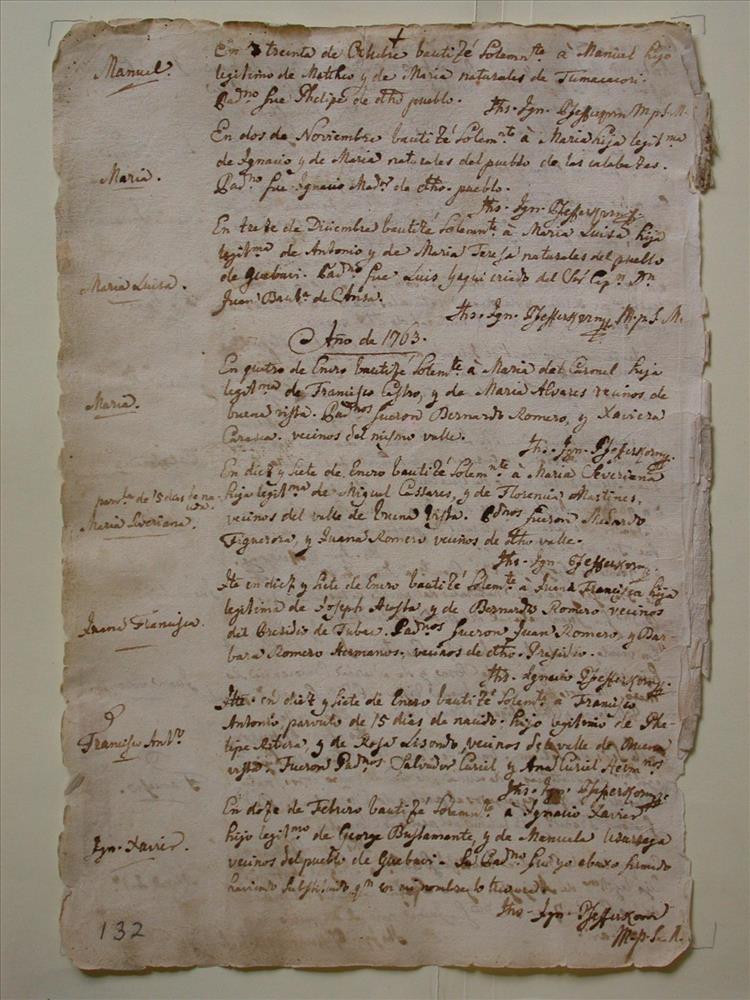 En treinta de Octubre bautizé Solemnte à Manuel hijo
Manuel.
legitimo de Matheo y de Maria naturales de Tumacacori.
Padno fue Phelipe de dho pueblo.
Ihs. Ign. Pfefferkorn M.p.S.M.
En dos de Noviembre bautizé Solemnte à Maria hija legitma
de Ignacio y de Maria naturales del pueblo de las calabazas.
Maria.
Padno fue Ignacio de dho. pueblo.
Ihs. Ign. Pfefferkorn
En treze de Diciembre bautizé Solemnte à Maria Luisa hija
legitma de Antonio y de Maria Teresa naturales del pueblo
Maria Luisa.
de Guebavi. Padno fue Luis Yaqui criado del Sor Capn Dn
Juan Bauta de Ansa.
Ihs. Ign. Pfefferkorn M.p.S.M.
Año de 1763.
En quatro de Enero bautizé Solemte à Maria del hija
legitma de Francisco Castro, y de Maria Alvares vecinos de
Maria.
buena vista. Padnos fueron Bernardo Romero, y Xaviera
vecinos del mismo valle.
Ihs. Ign. Pfefferkorn
En diez y Siete de Enero bautizé Solemnte à Maria Severiana
parvla de 15 dias de na-
hija legitma de Miguel Cassares, y de Florencia Martines,
Maria Siveriana.
vecinos del valle de buena vista. Padnos fueron Medardo
Figueroa, y Juana Romero vecinos de dho valle.
Ihs. Ign. Pfefferkorn
Ite en diez y Siete de Enero bautizé Solemte à Juana Francisca hija
legitima de Joseph Acosta, y de Bernarda Romero vecinos
Juana Francisca.
del Presidio de Tubac. Padnos fueron Juan Romero, y Bar-
bara Romero Hermanos. vecinos de dho. Presidio.
Ihs. Ignacio Pfefferkorn
Ite. en diez y Siete de Enero bautizé Solemte à Francisco
Antonio parvulo de 15 dias de nacido. hijo legitimo de Phe-
Francisco Anto
lipe Ribera, y de Rosa Lisondo, vecinos del valle de Buena
vista. Fueron Padnos Salvador Curiel y Ana Curiel Hermnos
Ihs. Ign. Pfefferkorn
En doze de Febrero bautizé Solemnte à Ignacio Xavier
Ign. Xavier.
hijo legitmo de George Bustamante, y de Manuela Usurraga
vecinos del pueblo de Guebavi. Su Padno fui yo abaxo firmado
haviendo en mi nombre lo
Ihs. Ign. Pfefferkorn
M.p.S.M.
132